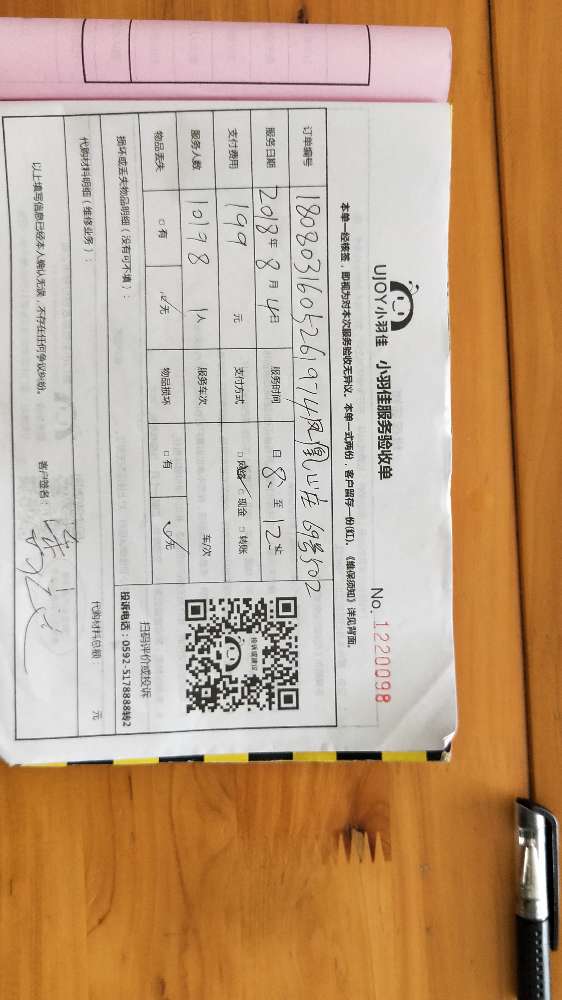 UJOY小羽佳 小羽佳服务验收单
No. 1220098
本单一经核签，即视为对本次服务验收无异议。本单一式两份，客户留存一份(红)。《维保须知》详见背面。
订单编号 1808031605261974凤凰山庄69号502
服务日期 2018年8月4日 服务时间 日8:至12:
支付费用 199 元 支付方式 □网络 □现金 □转账
服务人数 10198 1人 服务车次 车/次
物品丢失 □有 ☑无 物品损坏 □有 ☑无
投诉或建议
扫码评价或投诉
损坏或丢失物品明细（没有可不填）：
投诉电话：0592-5178888转2
代购材料明细（维修业务）：
代购材料总额： 元
以上填写信息已经本人确认无误，不存在任何争议纠纷。
客户签名：